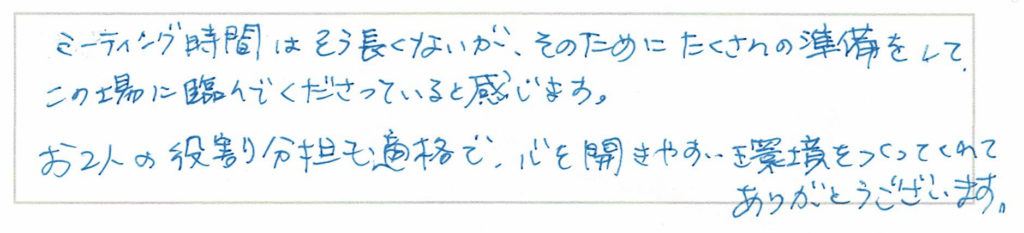 ミーティング時間はそう長くないが、そのためにたくさんの準備をして、
この場に臨んでくださっていると感じます。
お2人の役割分担も適格で、心を開きやすい環境をつくってくれて
ありがとうございます。